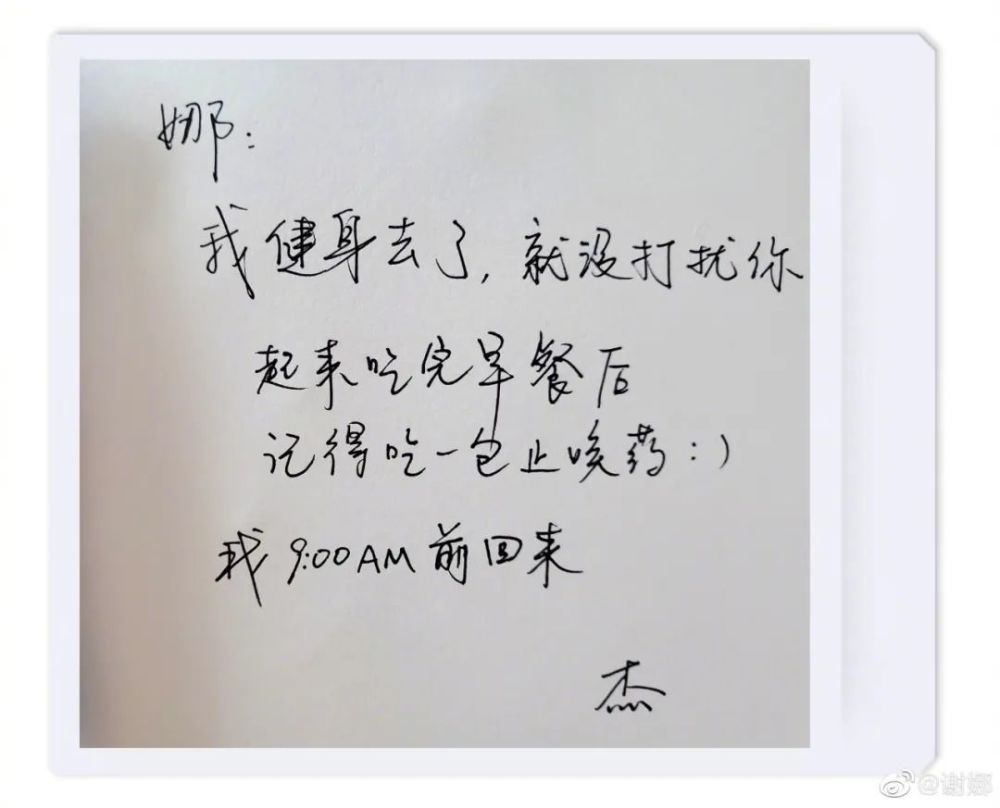 娜:
我健身去了,就没打扰你
起来吃完早餐后
记得吃一包止咳药:)
我9:00AM前回来
杰
@谢娜